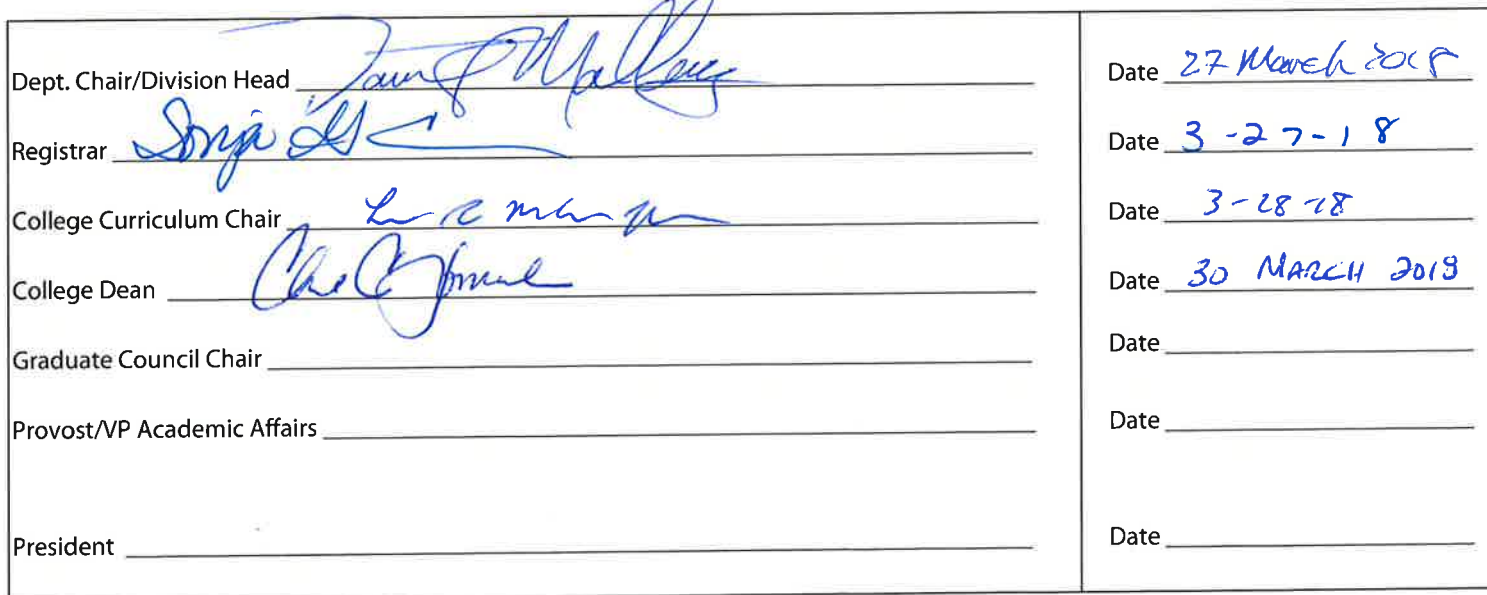 Dept. Chair/Division Head Date 27 March 2018
Registrar Sonja Date 3-27-18
College Curriculum Chair Date 3-28-18
College Dean Date 30 MARCH 2018
Graduate Council Chair Date
Provost/VP Academic Affairs Date
President Date